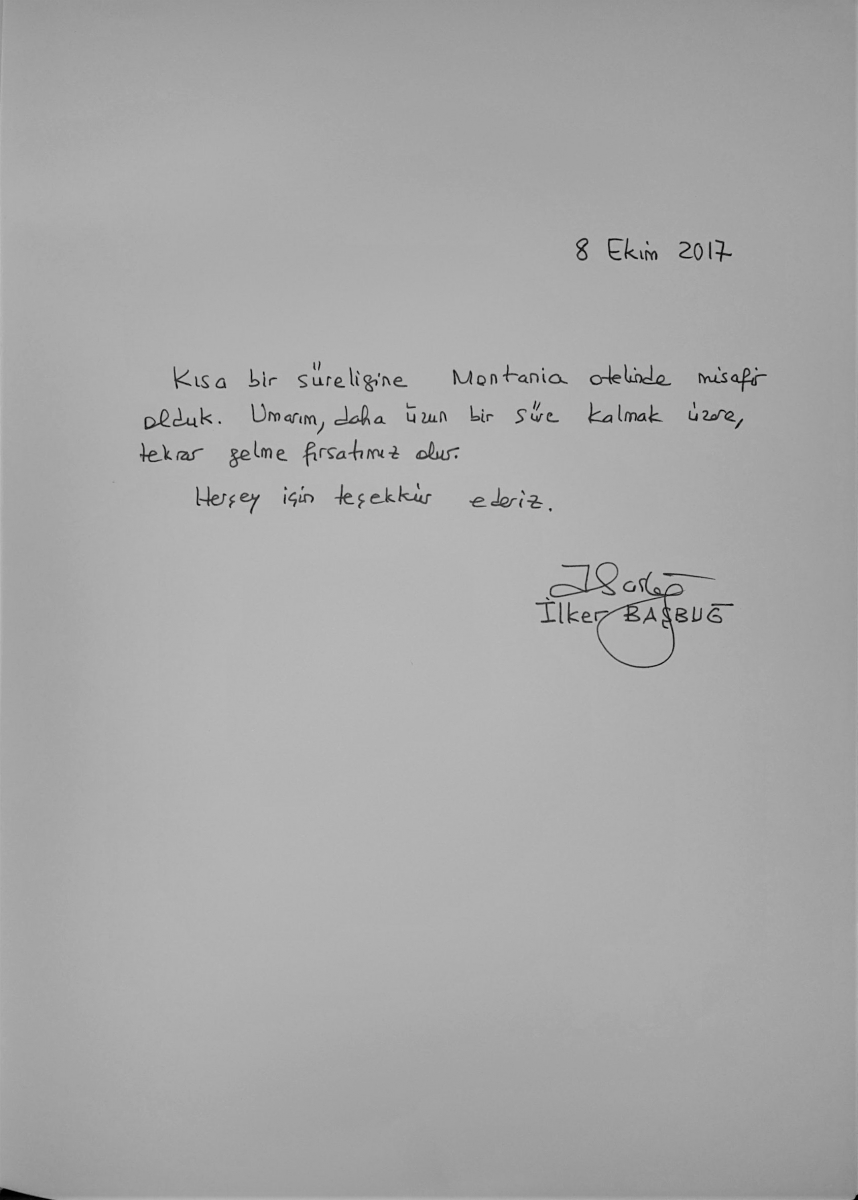 8 Ekim 2017
Kısa bir süreligine Montania otelinde misafir
olduk. Umarım, daha üzun bir süre kalmak üzere,
tekrar gelme fırsatımız olur.
Herşey için teşekkür ederiz.
İlker BAŞBUĞ